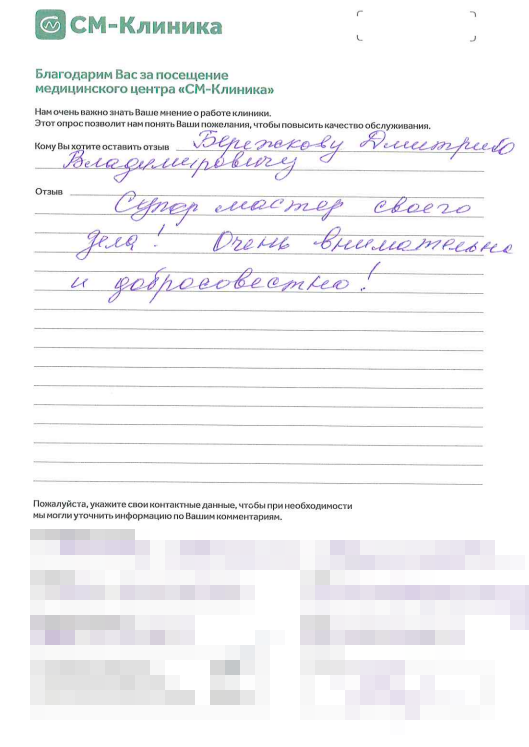 СМ-Клиника
Благодарим Вас за посещение
медицинского центра «СМ-Клиника»
Нам очень важно знать Ваше мнение о работе клиники.
Этот опрос позволит нам понять Ваши пожелания, чтобы повысить качество обслуживания.
Кому Вы хотите оставить отзыв Бережкову Дмитрию
Владимировичу
Отзыв
Супер мастер своего
дела! Очень внимательно
и добросовестно!
Пожалуйста, укажите свои контактные данные, чтобы при необходимости
мы могли уточнить информацию по Вашим комментариям.